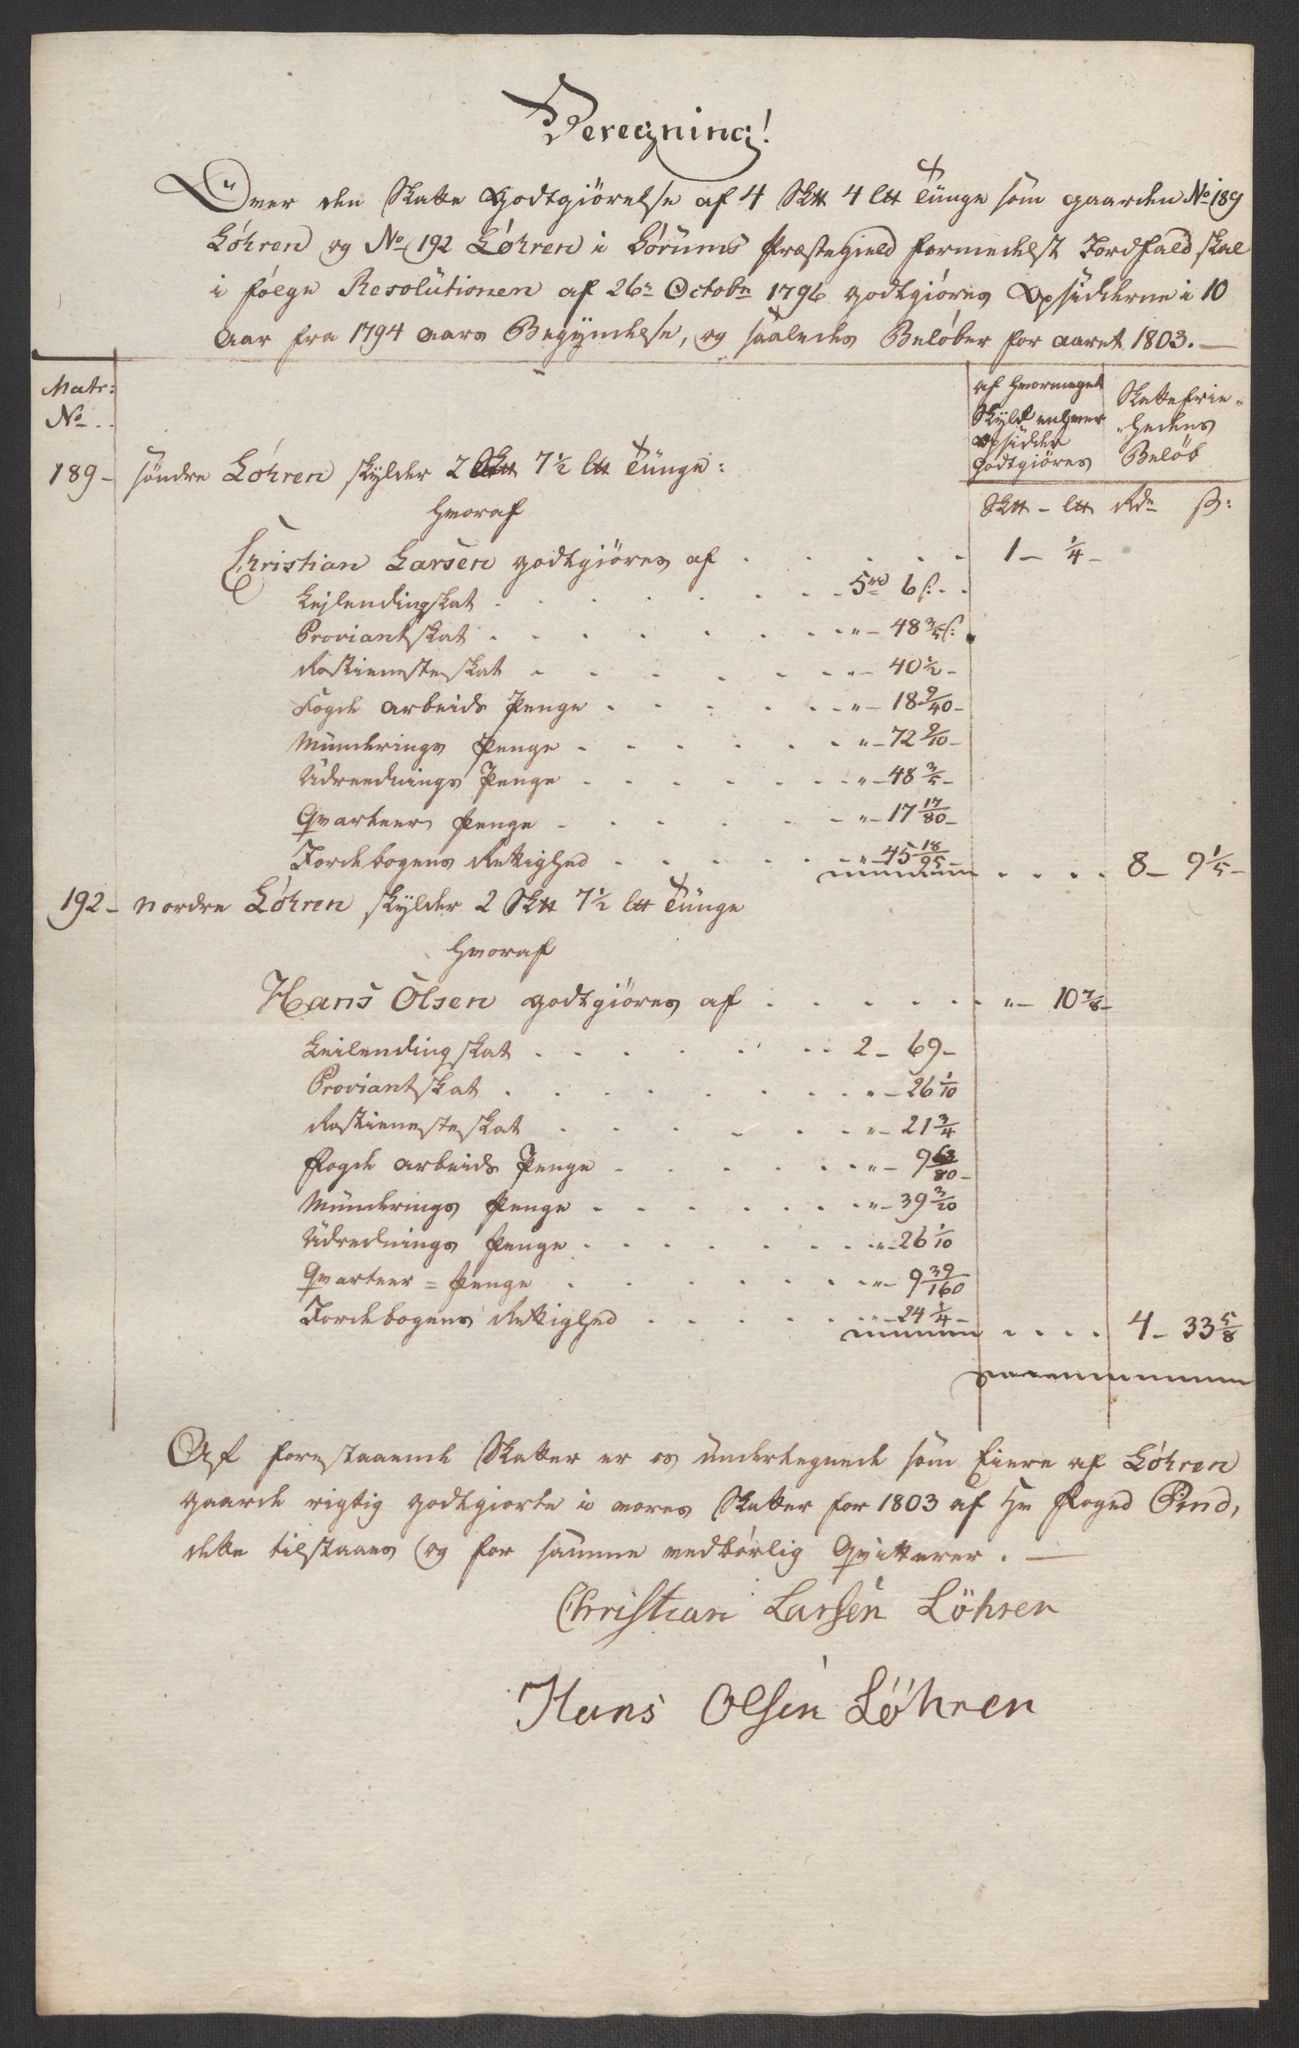 Beregning!
Over den Skatte Godtgiörelse af 4 Sk℔ 4 l℔ Tünge som gaarden No 189
Löhren og No 192 Löhren i Börums Præstegield formedelst Jordfald skal
i følge Resolütionen af 26de Octobr 1796 godtgiöres Opsidderne i 10
Aar fra 1794 Aars Begÿndelse, og saaledes Belöber for aaret 1803. —
Matr:
No
af hvormeget
Skyld enhver
Opsidder
godtgiöres
Skattefrie-
hedens
Belöb
Sk℔ - l℔ Rdr ß:
189 - söndre Löhren skylder 2 Sk℔ 7½ l℔ Tünge:
hvoraf
Christian Larsen godtgiöres af . . . . . 1 - ¼ -
Lejlendingskat . . . 5rd 6 ß. . .
Proviantskat . . . " - 48 3/5 ß:
Rostienesteskat . . . " - 40½ -
Fogde Arbeids Penge . . . " - 18 9/40 -
Münderings Penge . . . " - 72 9/10 -
Udreednings Penge . . . " - 48 3/5 -
Qvarteer Penge . . . " - 17 17/80 -
Jordebogens Rettighed . . . " - 45 18/95 - . . . . 8 - 9 1/5 -
192 - Nordre Löhren skylder 2 Sk℔ 7½ l℔ Tünge
hvoraf
Hans Olsen godtgiöres af . . . . . " - 10 7/8 -
Leilendingskat . . . 2 - 69 -
Proviantskat . . . " - 26 1/10
Rostienesteskat . . . " - 21 3/4
Fogde Arbeids Penge . . . " - 9 63/80 -
Münderings Penge . . . " - 39 3/20
Udrednings Penge . . . " - 26 1/10
Qvarteer = Penge . . . " - 9 39/160
Jordebogens Rettighed . . . " - 24 1/4 - . . . . 4 - 33 5/8
Af forestaaende Skatter er os ündertegnede som Eiere af Löhren
gaarde rigtig godtgiorte i vores Skatter for 1803 af Hr Foged Pind,
dette tilstaaes og for samme vedbörlig Qvitterer. —
Christian Larsen Löhren
Hans Olsen Löhren